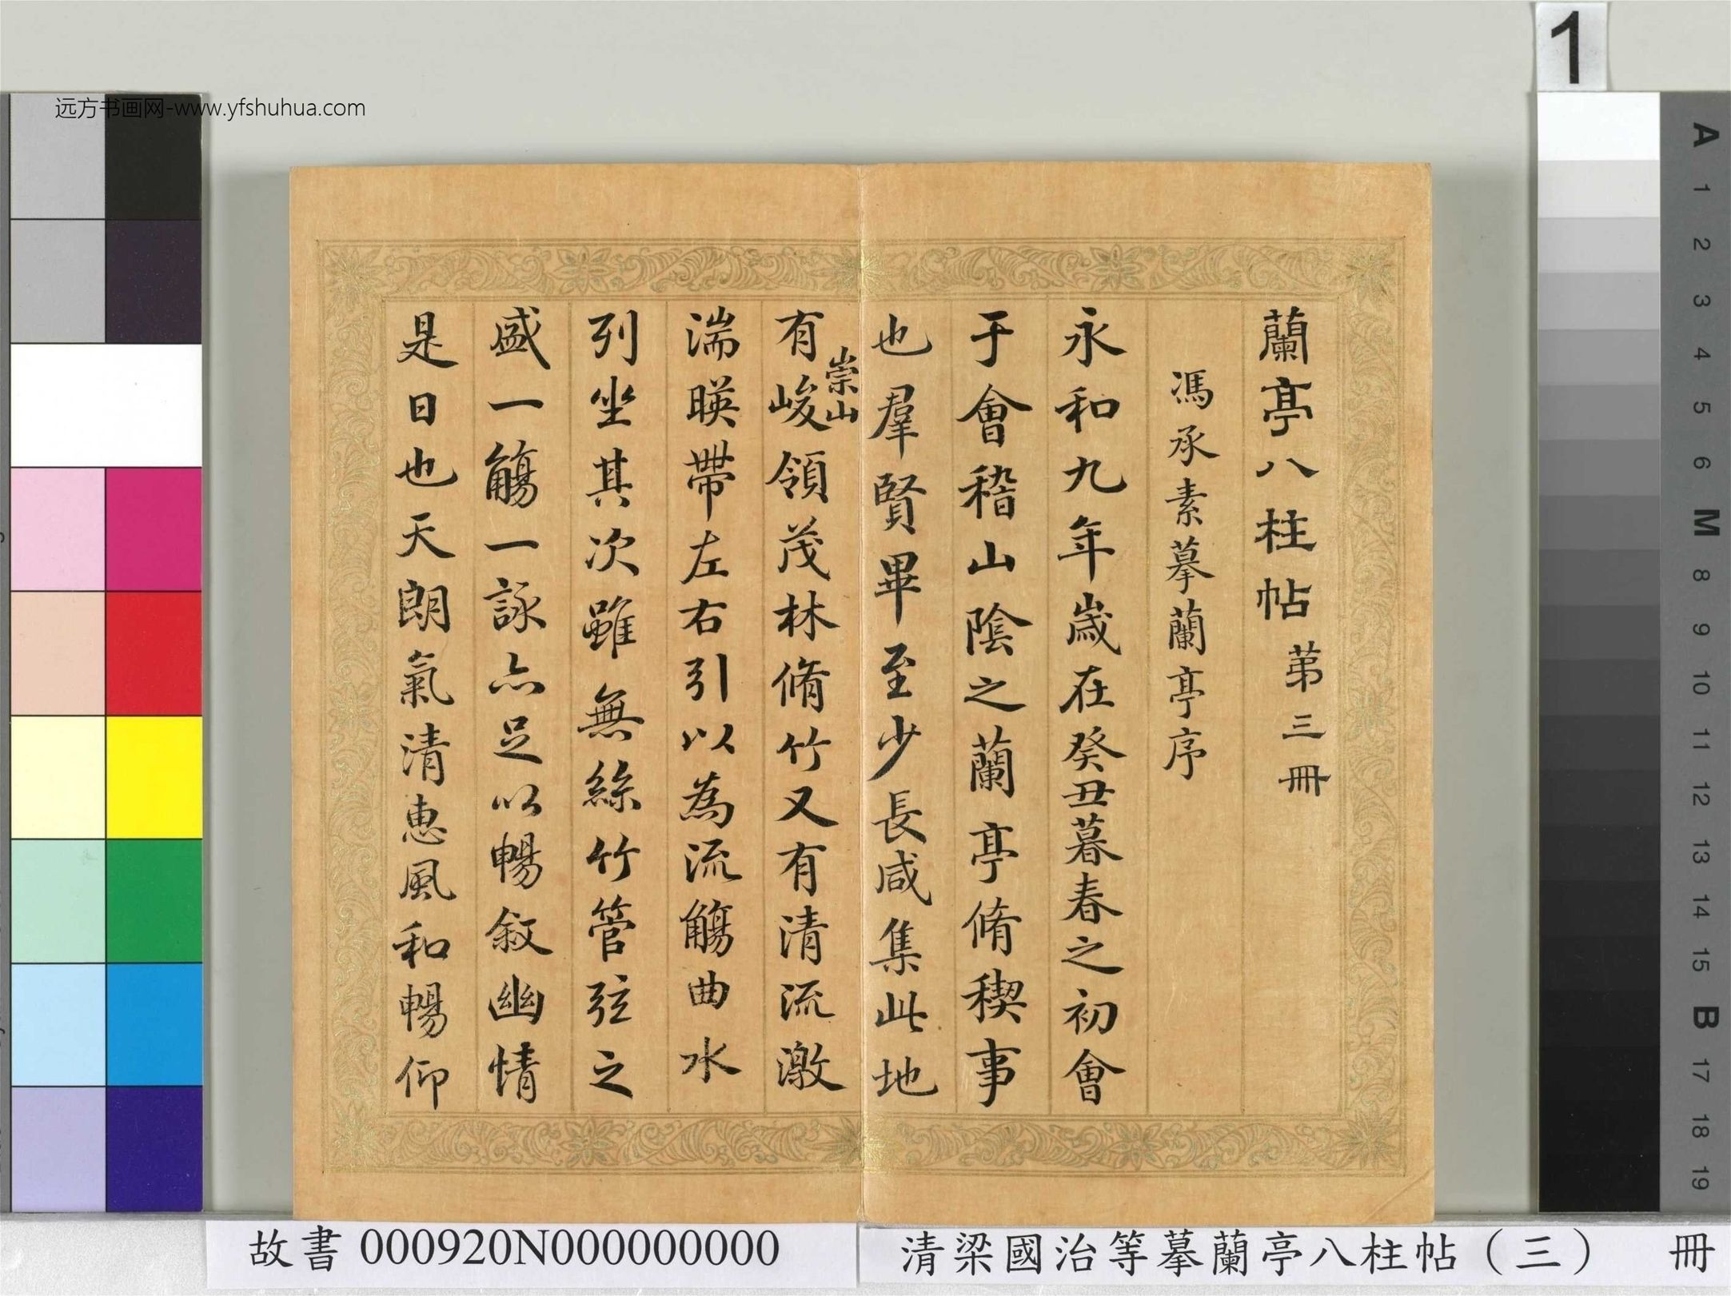 远方书画网-www.yfshuhua.com
1
蘭亭八柱帖 第三冊
馮承素摹蘭亭序
永和九年歲在癸丑暮春之初會
于會稽山陰之蘭亭脩稧事
也羣賢畢至少長咸集此地
有崇山峻領茂林脩竹又有清流激
湍暎帶左右引以為流觴曲水
列坐其次雖無絲竹管弦之
盛一觴一詠亦足以暢敘幽情
是日也天朗氣清惠風和暢仰
A 1 2 3 4 5 6 M 8 9 10 11 12 13 14 15 B 17 18 19
故書 000920N000000000
清梁國治等摹蘭亭八柱帖（三） 冊